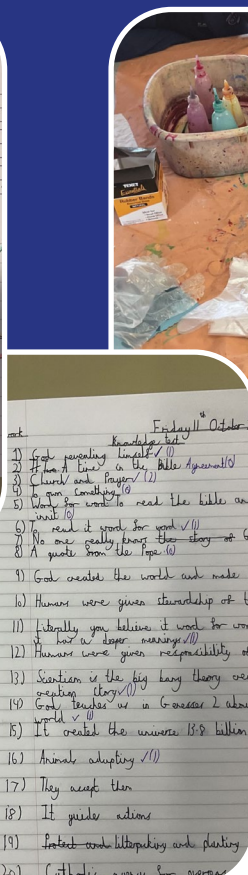 TIGER
Essentials
Rubber Bands
work
Friday 11th October
Knowledge test
1) God revealing himself ✓ (1)
2) A time in the Bible Agreement (0)
3) Church and Prayer ✓ (2)
4) To own something (0)
5) Word for word to read the bible an
(0)
6) To read it word for word ✓ (1)
7) No one really knows the story of G
8) A quote from the Pope (0)
9) God created the world and made
10) Humans were given stewardship of t
11) Literally you believe it word for wor
it has a deper meanings ✓ (1)
12) Humans were given responsibility of
13) Scientism is the big bang theory over
creation story ✓ (1)
14) God teaches us in Genesses 2 abou
world ✓ (1)
15) It created the universe 13.8 billion
16) Animals adapting ✓ (1)
17) They accept them
18) It guides actions
19) Protect and litterpicking and planting
20) Catholic